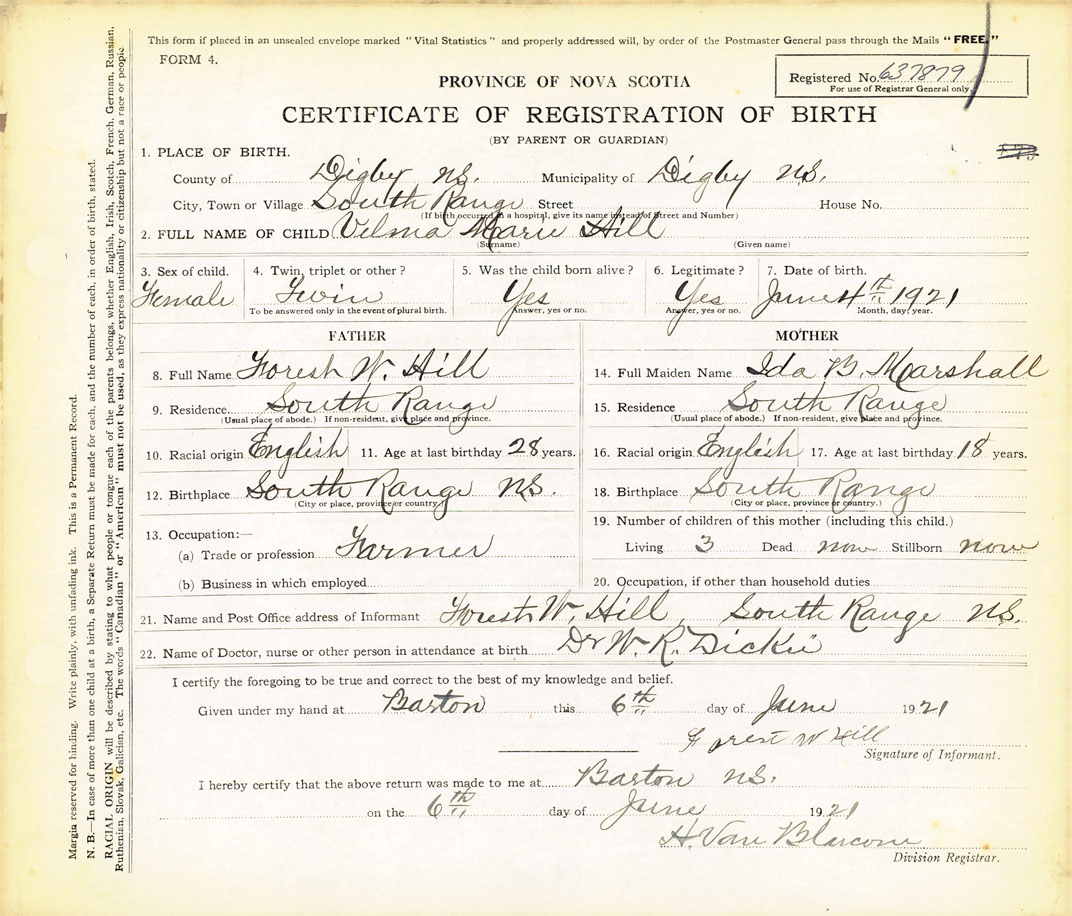 This form if placed in an unsealed envelope marked "Vital Statistics" and properly addressed will, by order of the Postmaster General pass through the Mails "FREE."
FORM 4.
Registered No. 637879
For use of Registrar General only.
PROVINCE OF NOVA SCOTIA
CERTIFICATE OF REGISTRATION OF BIRTH
(BY PARENT OR GUARDIAN)
1. PLACE OF BIRTH.
County of Digby N.S. Municipality of Digby N.S.
City, Town or Village South Range Street House No.
(If birth occurred in a hospital, give its name instead of Street and Number)
2. FULL NAME OF CHILD Vilma Marie Hill
(Surname) (Given name)
3. Sex of child. 4. Twin, triplet or other? 5. Was the child born alive? 6. Legitimate? 7. Date of birth.
Female Twin Yes Yes June 4th 1921
To be answered only in the event of plural birth. Answer, yes or no. Answer, yes or no. Month, day, year.
FATHER
8. Full Name Forest W. Hill
9. Residence South Range
(Usual place of abode.) If non-resident, give place and province.
10. Racial origin English 11. Age at last birthday 28 years.
12. Birthplace South Range N.S.
(City or place, province or country.)
13. Occupation:—
(a) Trade or profession Farmer
(b) Business in which employed
MOTHER
14. Full Maiden Name Ida B. Marshall
15. Residence South Range
(Usual place of abode.) If non-resident, give place and province.
16. Racial origin English 17. Age at last birthday 18 years.
18. Birthplace South Range
(City or place, province or country.)
19. Number of children of this mother (including this child.)
Living 3 Dead none Stillborn none
20. Occupation, if other than household duties
21. Name and Post Office address of Informant Forest W. Hill, South Range N.S.
22. Name of Doctor, nurse or other person in attendance at birth Dr W. R. Dickie
I certify the foregoing to be true and correct to the best of my knowledge and belief.
Given under my hand at Barton this 6th day of June 1921
Forest W Hill
Signature of Informant.
I hereby certify that the above return was made to me at Barton N.S.
on the 6th day of June 1921
H. Van Blarcom
Division Registrar.
Margin reserved for binding. Write plainly, with unfading ink. This is a Permanent Record.
N. B.—In case of more than one child at a birth, a Separate Return must be made for each, and the number of each, in order of birth, stated.
RACIAL ORIGIN will be described by stating to what people or tongue each of the parents belongs, whether English, Irish, Scotch, French, German, Russian,
Ruthenian, Slovak, Galician, etc. The words "Canadian" or "American" must not be used, as they express nationality or citizenship but not a race or people